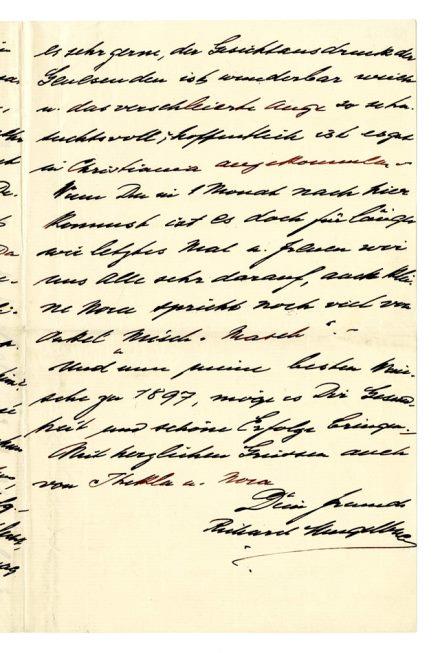 es sehr gerne, der Gesichtsausdruck der
Genesenden ist wunderbar weich
u. das verschleierte Auge so sehn-
suchtsvoll; hoffentlich ist es gut
in Christiania angekommen.-
Wenn Du in 1 Monat nach hier
kommst ist es doch für länger
wie letztes Mal u. freuen wir
uns Alle sehr darauf, auch klei-
ne Nora spricht noch viel von
Onkel
Und nun meine besten Wün-
sche zu 1897, möge es Dir Gesund-
heit und schöne Erfolge bringen.
Mit herzlichen Grüssen auch
von Thekla u. Nora
Dein Freund
Richard